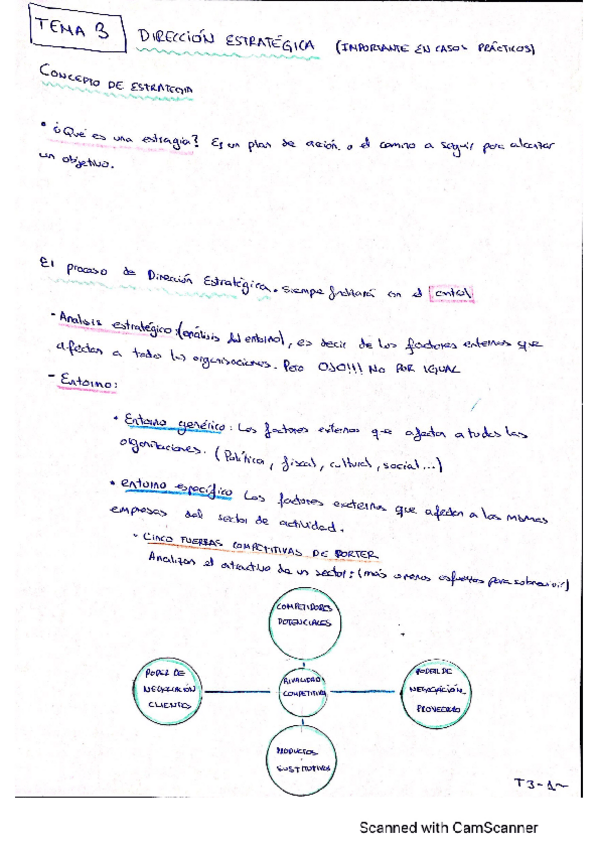 TEMA 3 DIRECCIÓN ESTRATÉGICA (IMPORTANTE EN CASOS PRÁCTICOS)
CONCEPTO DE ESTRATEGIA
• ¿Qué es una estragia? Es un plan de acción o el camino a seguir para alcanzar
un objetivo.
El proceso de Dirección Estratégica. siempre finalizará con el control
- Analisis estratégico: (análisis del entorno), es decir de los factores externos que
afectan a todas las organizaciones. Pero OJO!!! NO POR IGUAL
- Entorno:
• Entorno genérico: Los factores externos que afectan a todas las
organizaciones. (Política, fiscal, cultural, social...)
• entorno específico Los factores externos que afectan a las mismas
empresas del sector de actividad.
• CINCO FUERZAS COMPETITIVAS DE PORTER
Analizan el atractivo de un sector: (más o menos esfuerzos para sobrevivir)
COMPETIDORES
POTENCIALES
PODER DE
NEGOCIACIÓN
CLIENTES
RIVALIDAD
COMPETITIVA
PODER DE
NEGOCIACIÓN
PROVEEDOR
PRODUCTOS
SUSTITUTIVOS
T3-1
Scanned with CamScanner